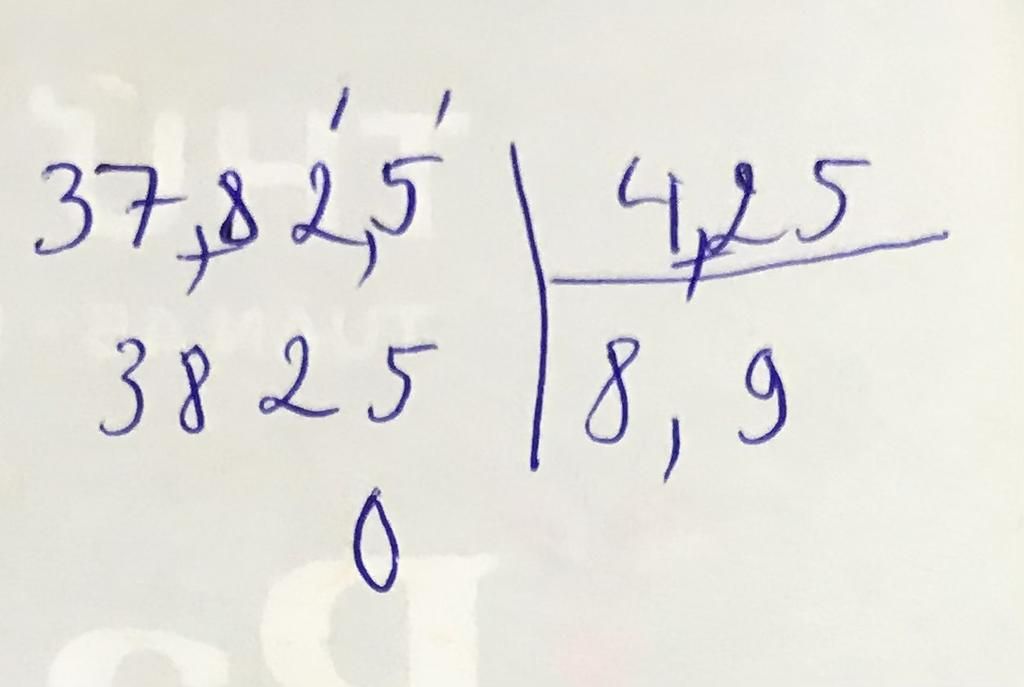 37,82,5 4,25
3825 8,9
0